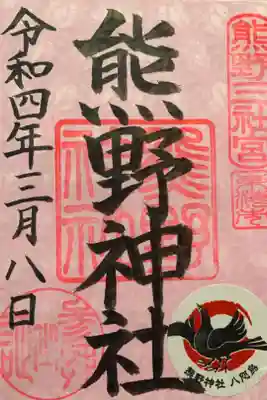 熊野三社宮
熊野神社
令和四年三月八日
熊野神社 八咫烏